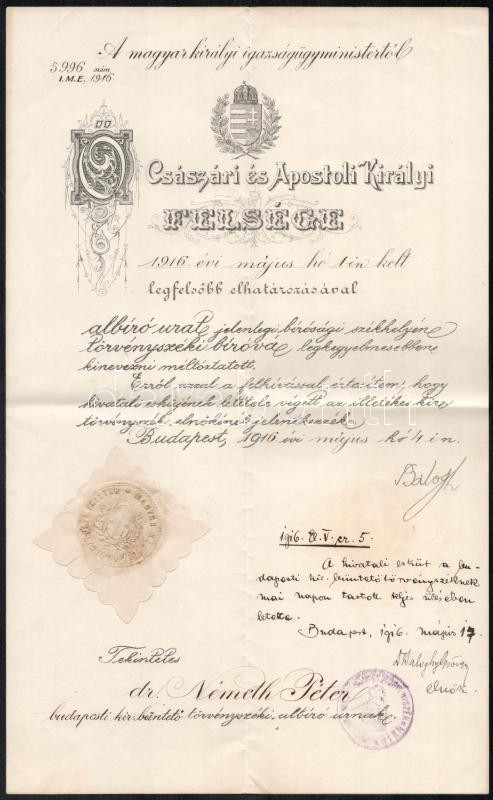 A magyar királyi igazságügyministertől
5996 szám
I.M.E. 1916
Ő
Császári és Apostoli Királyi
FELSÉGE
1916 évi május hó 1-én kelt
legfelsőbb elhatározásával
albíró urat jelenlegi bírósági székhelyén
törvényszéki bíróvá legkegyelmesebben
kinevezni méltóztatott.
Erről azzal a felhívással értesítem, hogy
hivatali esküjének letétele végett az illetékes kir.
törvényszék elnökénél jelentkezzék.
Budapest, 1916 évi május hó 4-én.
Balogh
1916. El. V. cs. 5.
A hivatali esküt a bu-
dapesti kir. büntetőtörvényszéknek
mai napon tartott teljes ülésében
letette.
Budapest, 1916. május 17
elnök.
Tekintetes
dr. Németh Péter
budapesti kir. büntető törvényszéki albíró úrnak